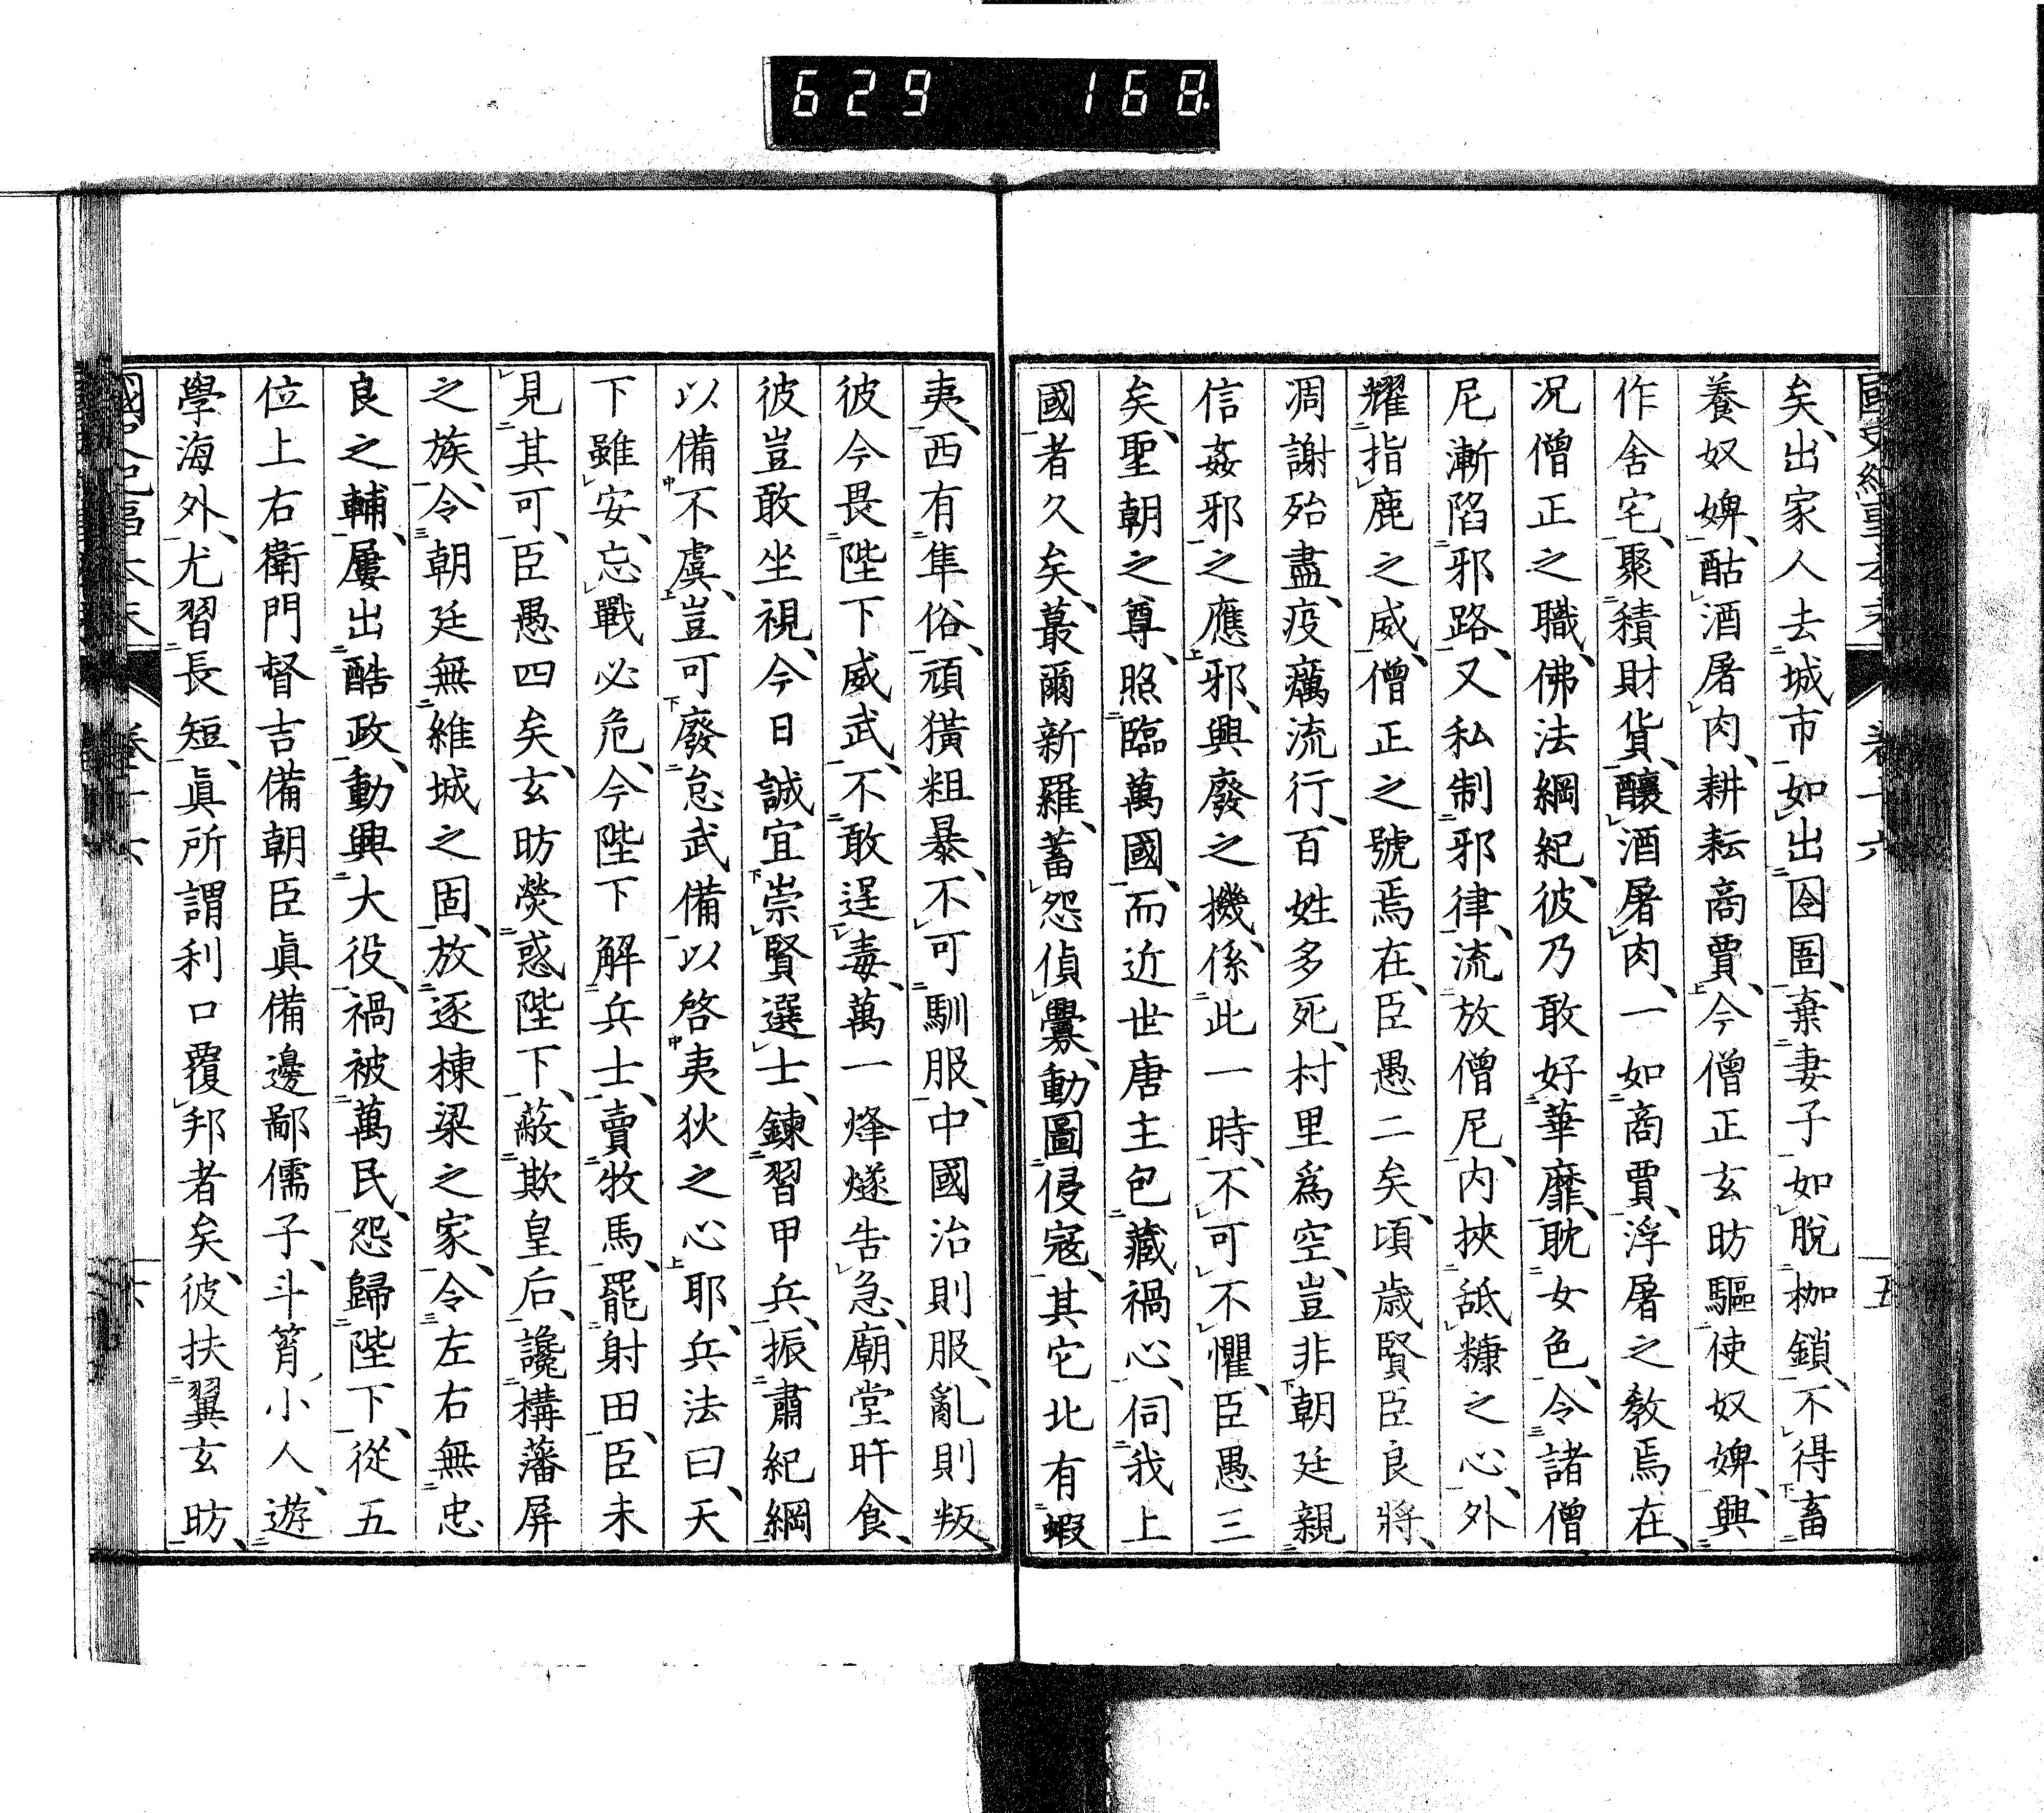 629 168.
矣、出家人去城市、如出囹圄、棄妻子、如脫枷鎖、不得畜
養奴婢、酤酒屠肉、耕耘商賈、今僧正玄昉驅使奴婢、興
作舍宅、聚積財貨、釀酒屠肉、一如商賈、浮屠之教焉在、
况僧正之職、佛法綱紀、彼乃敢好華靡、耽女色、令諸僧
尼漸陷邪路、又私制邪律、流放僧尼、内挾舐糠之心、外
耀指鹿之威、僧正之號焉在、臣愚二矣、頃歲賢臣良將、
凋謝殆盡、疫癘流行、百姓多死、村里爲空、豈非朝廷親
信姦邪之應邪、興廢之機、係此一時、不可不懼、臣愚三
矣、聖朝之尊、照臨萬國、而近世唐主包藏禍心、伺我上
國者久矣、蕞爾新羅、蓄怨偵釁、動圖侵寇、其它北有蝦
夷、西有隼俗、頑獷粗暴、不可馴服、中國治則服、亂則叛、
彼今畏陛下威武、不敢逞毒、萬一烽燧告急、廟堂旰食、
彼豈敢坐視、今日誠宜崇賢選士、鍊習甲兵、振肅紀綱
以備不虞、豈可廢怠武備以啓夷狄之心耶、兵法曰、天
下雖安、忘戰必危、今陛下解兵士、賣牧馬、罷射田、臣未
見其可、臣愚四矣、玄昉熒惑陛下、蔽欺皇后、讒構藩屏
之族、令朝廷無維城之固、放逐棟梁之家、令左右無忠
良之輔、屢出酷政、動興大役、禍被萬民、怨歸陛下、從五
位上右衛門督吉備朝臣眞備邊鄙儒子、斗筲小人、遊
學海外、尤習長短、眞所謂利口覆邦者矣、彼扶翼玄昉、